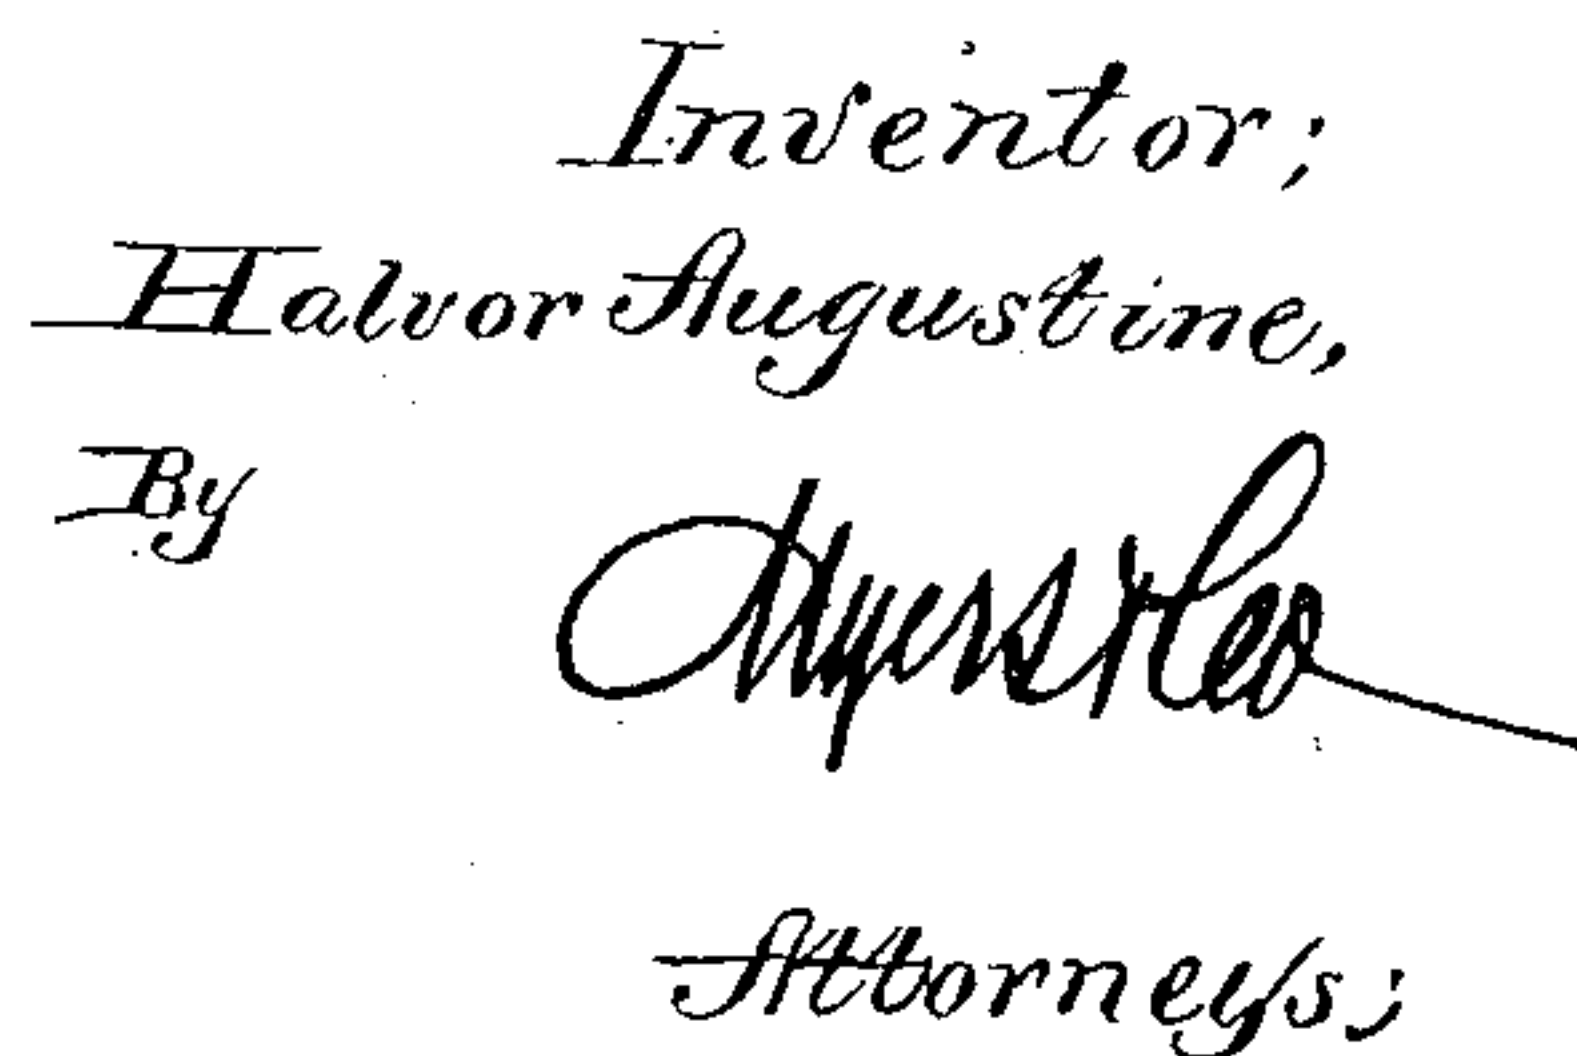 Inventor;
Halvor Augustine,
By
Myers &
Attorneys;